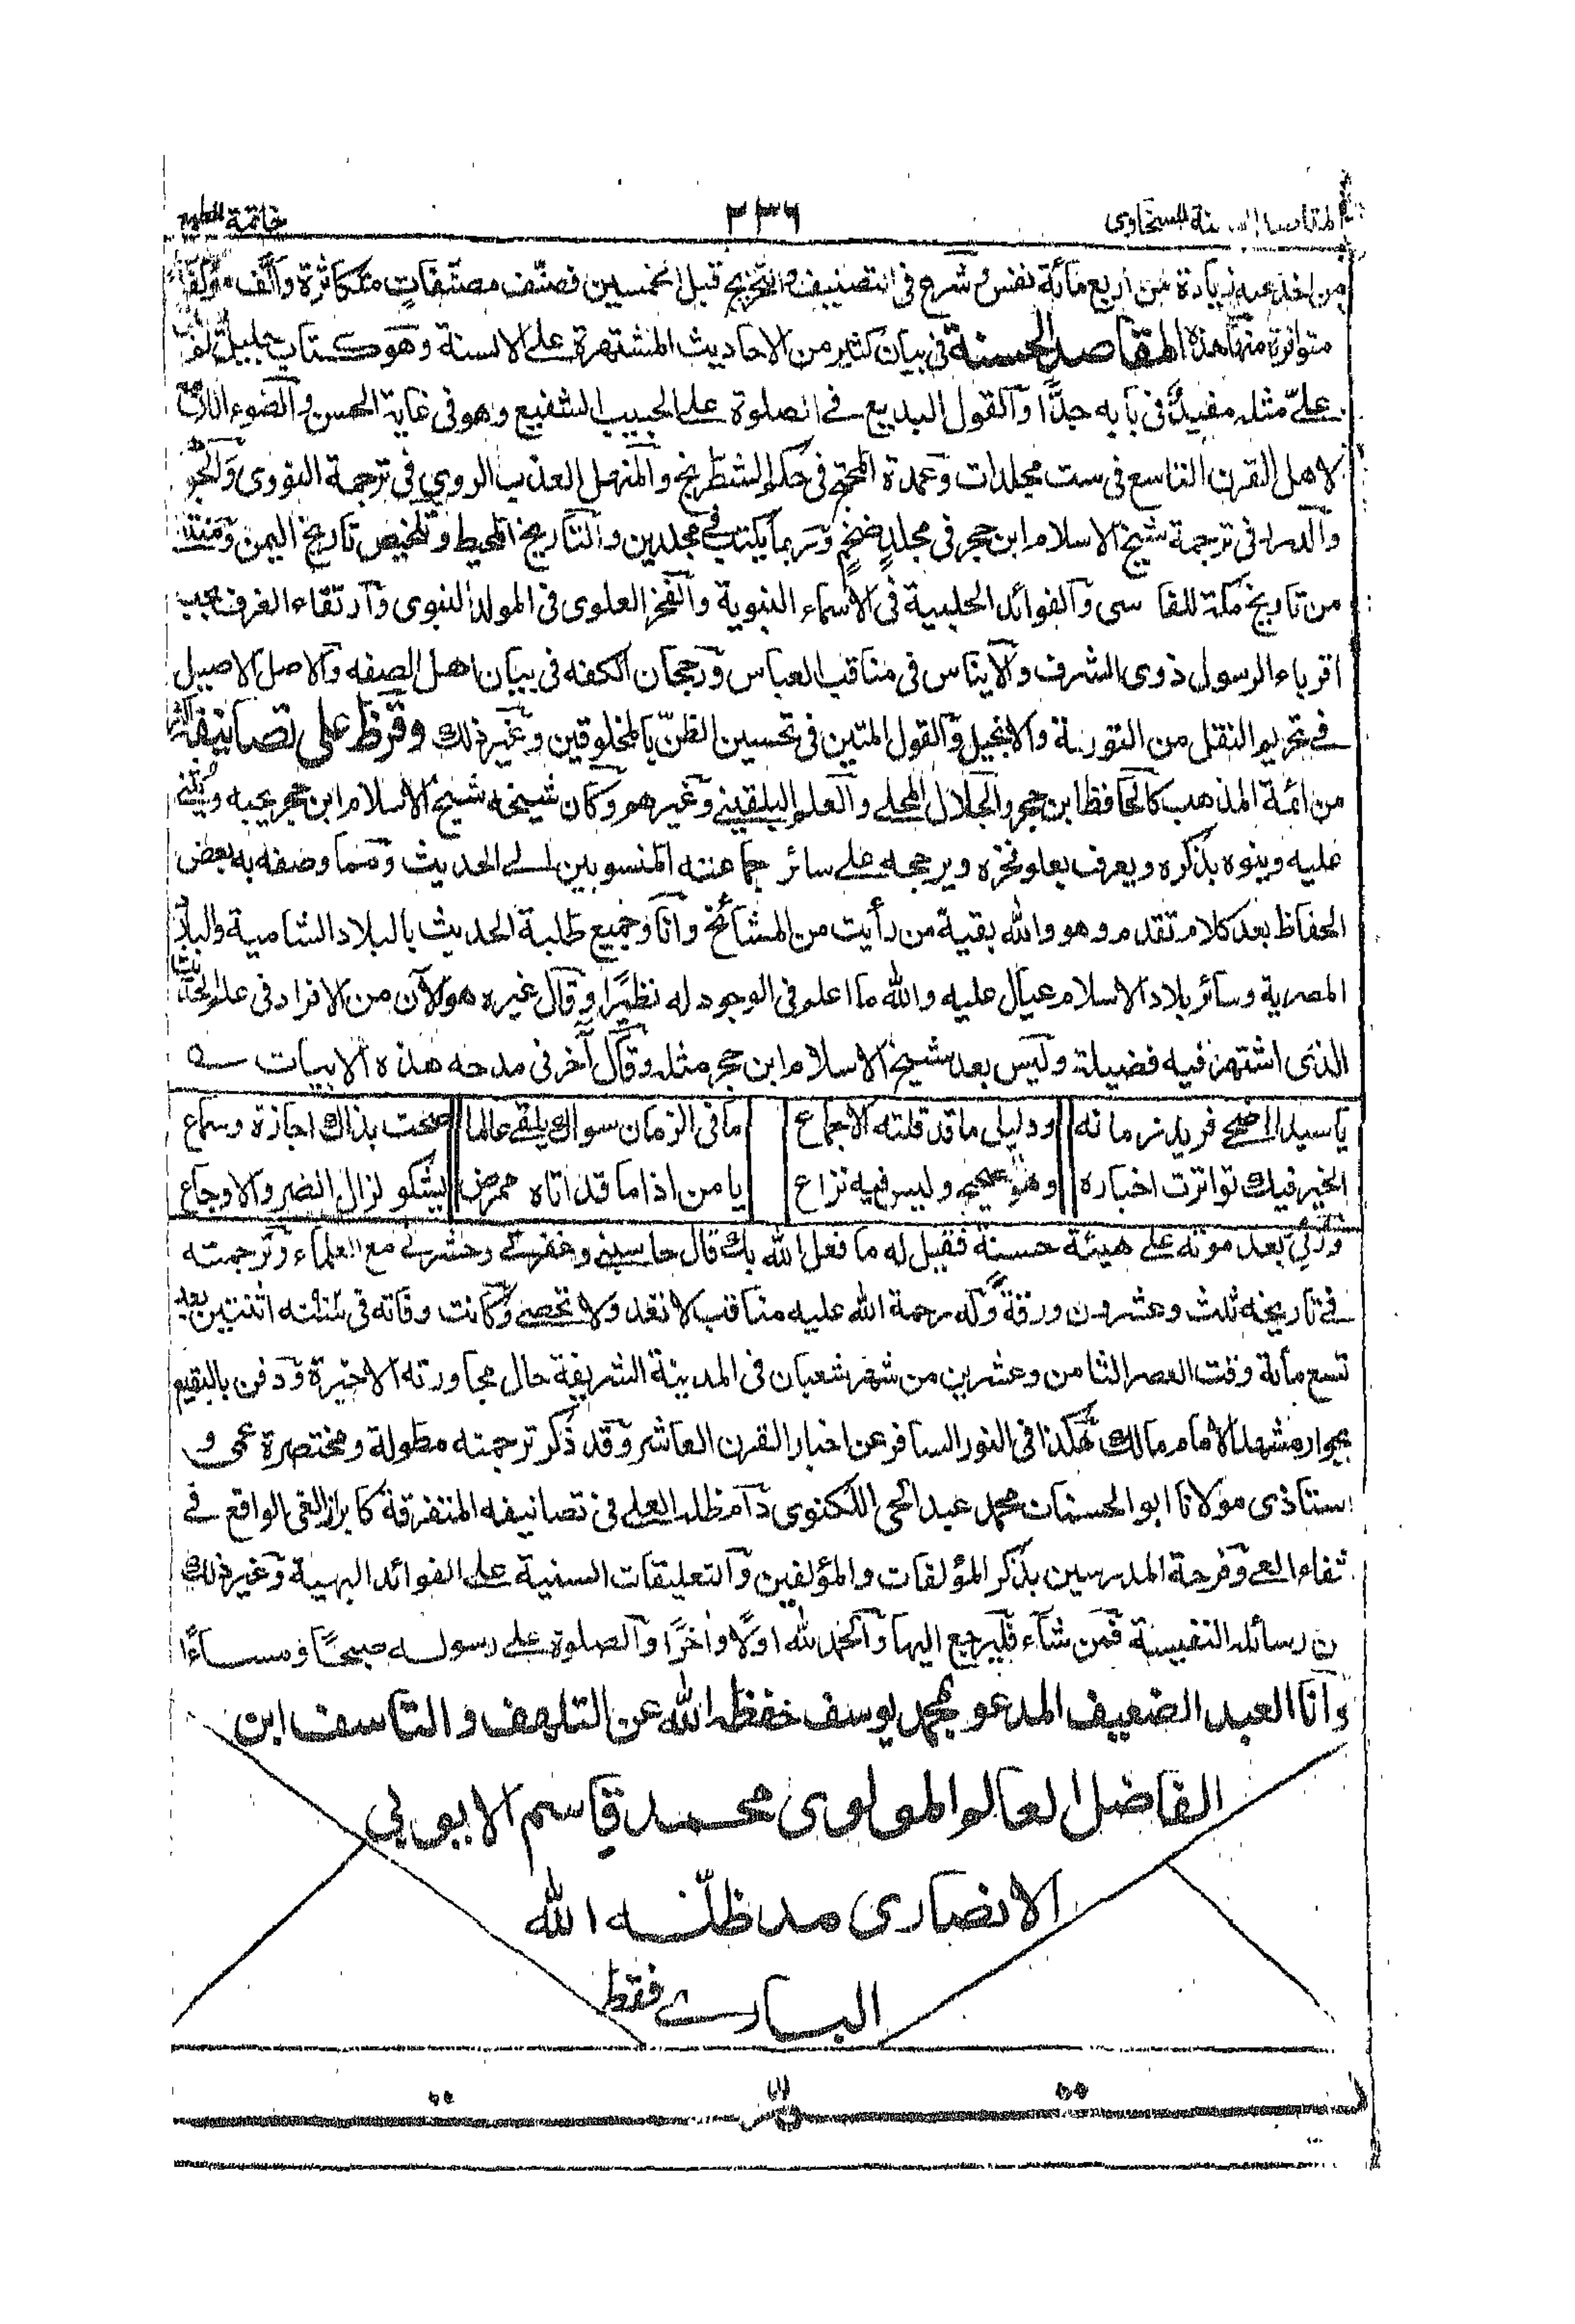 المقاصد الحسنة للسخاوي
٢٣٦
خاتمة الطبع
من اخذ عنه زيادة من اربع مائة نفس وشرع في التصنيف والتخريج قبل الخمسين فصنّف مصنّفاتٍ متكاثرة وألّف مؤلفات
متواترة منها هذه المقاصد الحسنة في بيان كثير من الاحاديث المشتهرة على الالسنة وهو كتاب جليل
على مثله مفيد في بابه جدًّا والقول البديع في الصلوة على الحبيب الشفيع وهو في غاية الحسن والضوء اللامع
لاهل القرن التاسع في ست مجلدات وعمدة المحتج في حكم الشطرنج والمنهل العذب الروي في ترجمة النووي والجواهر
والدرر في ترجمة شيخ الاسلام ابن حجر في مجلدٍ ضخمٍ وربما يكتب في مجلدين والتاريخ المحيط وتلخيص تاريخ اليمن ومنتقى
من تاريخ مكة للفاسي والفوائد الجلية في الاسماء النبوية والفخر العلوي في المولد النبوي وارتقاء الغرف بحب
اقرباء الرسول ذوى الشرف والايناس في مناقب العباس ورجحان الكفه في بيان اهل الصفه والاصل الاصيل
في تحريم النقل من التورية والانجيل والقول المتين في تحسين الظنّ بالمخلوقين وغير ذلك وقرّظ على تصانيفه اكثر
من ائمة المذهب كالحافظ ابن حجر والجلال المحلى والعلم البلقيني وغيرهم وكان شيخه شيخ الاسلام ابن حجر يحبه ويثني
عليه وينوه بذكره ويعرف بعلو فخره ويرجحه على سائر جماعته المنسوبين الى الحديث ومما وصفه به بعض
الحفاظ بعد كلام تقدم وهو والله بقية من رأيت من المشائخ وانا وجميع طلبة الحديث بالبلاد الشامية والبلاد
المصرية وسائر بلاد الاسلام عيال عليه والله ما اعلم في الوجود له نظيرًا وقال غيره هو الآن من الافراد في علم الحديث
الذي اشتهر فيه فضيلة وليس بعد شيخ الاسلام ابن حجر مثله وقال آخر في مدحه هذه الابيات
يا سيدا اضحى فريد زمانه ودليلي ما قد قلته الاجماع ما في الزمان سواك يلقى عالما صحت بذاك اجازة وسماع
الخير فيك تواترت اخباره وهو صحيح وليس فيه نزاع يا من اذا ما قد اتاه ممرض يشكو لزال الضر والاوجاع
ورئي بعد موته على هيئة حسنة فقيل له ما فعل الله بك قال حاسبني وغفر لي وحشرني مع العلماء وترجمته
في تاريخه ثلث وعشرون ورقة وله رحمة الله عليه مناقب لا تعد ولا تحصى وكانت وفاته في سنة اثنتين بعد
تسع مائة وقت العصر الثامن وعشرين من شهر شعبان في المدينة الشريفة حال مجاورته الاخيرة ودفن بالبقيع
بجوار مشهد الامام مالك هكذا في النور السافر عن اخبار القرن العاشر وقد ذكر ترجمته مطولة ومختصرة عمي و
استاذى مولانا ابو الحسنات محمد عبد الحى اللكنوى دام ظله العلى في تصانيفه المتفرقة كابراز الغي الواقع في
شفاء العي وفرحة المدرسين بذكر المؤلفات والمؤلفين والتعليقات السنية على الفوائد البهية وغير ذلك
من رسائله النفيسة فمن شاء فليرجع اليها والحمد لله اولًا وآخرًا والصلوة على رسوله صبحًا ومساءًا
وانا العبد الضعيف المدعو بمحمد يوسف حفظه الله عن التلهف والتاسف ابن
الفاضل العالم المولوى محمد قاسم الايوبي
الانصارى مد ظلّه الله
البارى فقط